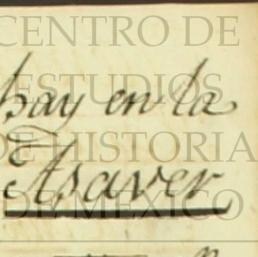 CENTRO DE
ESTUDIOS
hay en la
DE HISTORIA
Asaver
DE MEXICO